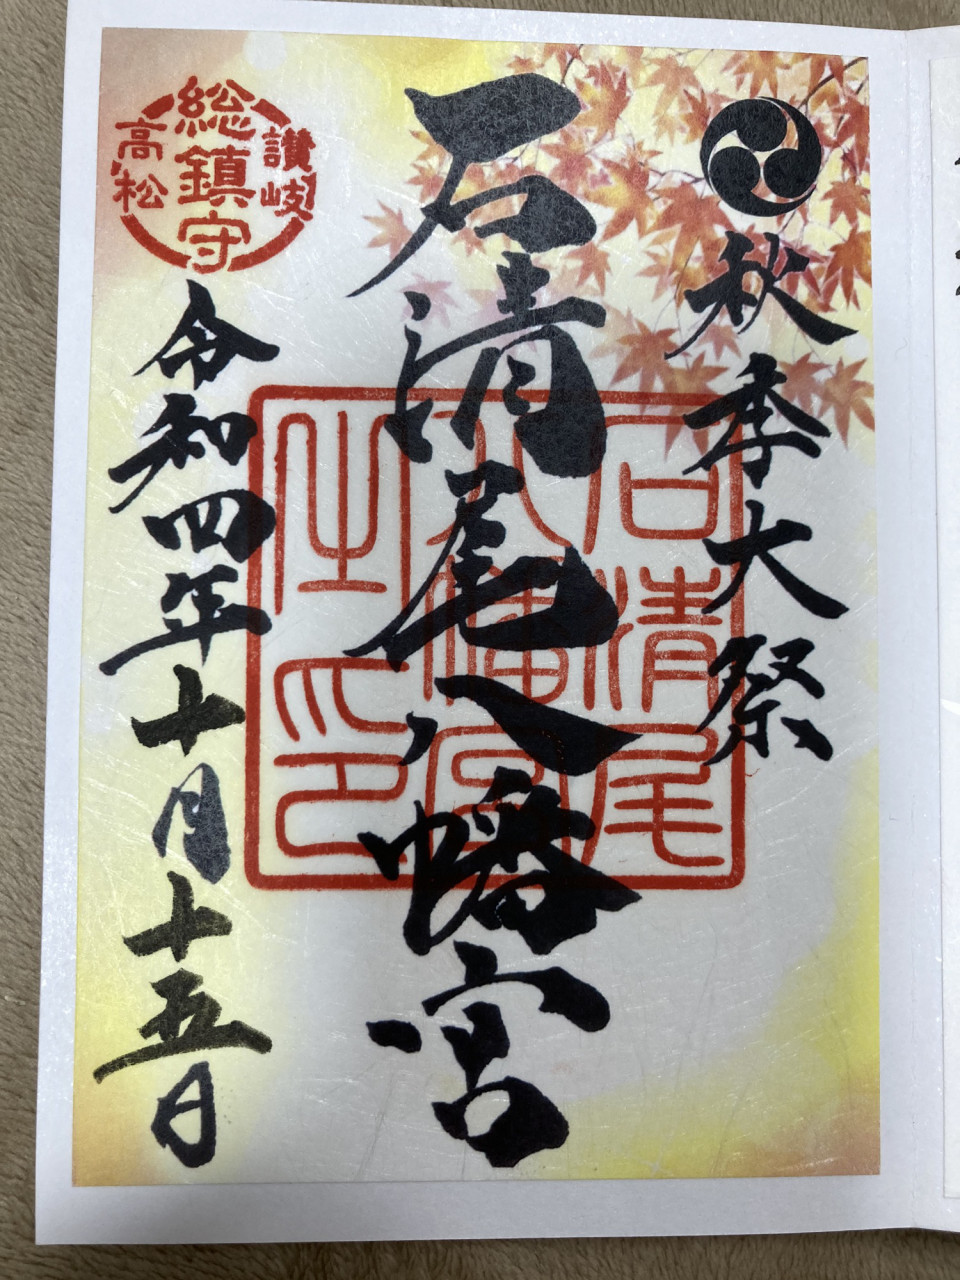 秋季大祭
石清尾八幡宮
石清尾
八幡宮
之印
讃岐
総鎮守
高松
令和四年十月十五日